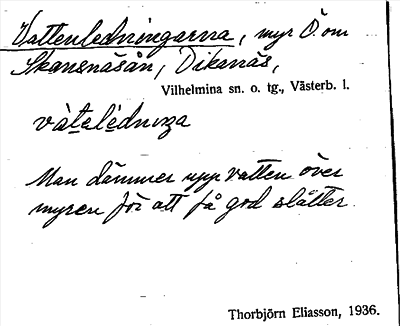 Vattenledningarna, myr Ö. om
Skansnäsån, Dikanäs,
Vilhelmina sn. o. tg., Västerb. l.
Man dämmer upp vatten över
myren för att få god slåtter.
Thorbjörn Eliasson, 1936.